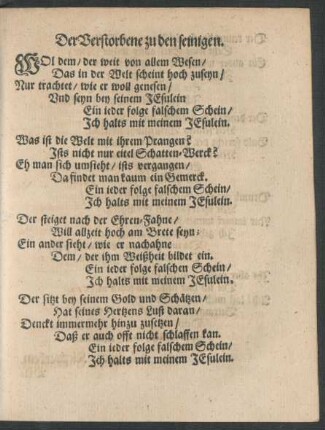 Der Verstorbene zu den seinigen.
WOl dem / der weit von allem Wesen /
Das in der Welt scheint hoch zuseyn /
Nur trachtet / wie er woll genesen /
Vnd seyn bey seinem JEsulein
Ein ieder folge falschem Schein /
Jch halts mit meinem JEsulein.
Was ist die Welt mit ihrem Prangen?
Jsts nicht nur eitel Schatten-Werck?
Eh man sich umsieht / ists vergangen /
Da findet man kaum ein Gemerck.
Ein ieder folge falschem Schein /
Jch halts mit meinem JEsulein.
Der steiget nach der Ehren-Fahne /
Will allzeit hoch am Brete seyn:
Ein ander sieht / wie er nachahne
Dem / der ihm Weißheit bildet ein.
Ein ieder folge falschem Schein /
Jch halts mit meinem JEsulein.
Der sitzt bey seinem Gold und Schätzen /
Hat seines Hertzens Lust daran /
Denckt immermehr hinzu zusetzen /
Daß er auch offt nicht schlaffen kan.
Ein ieder folge falschem Schein /
Jch halts mit meinem JEsulein.